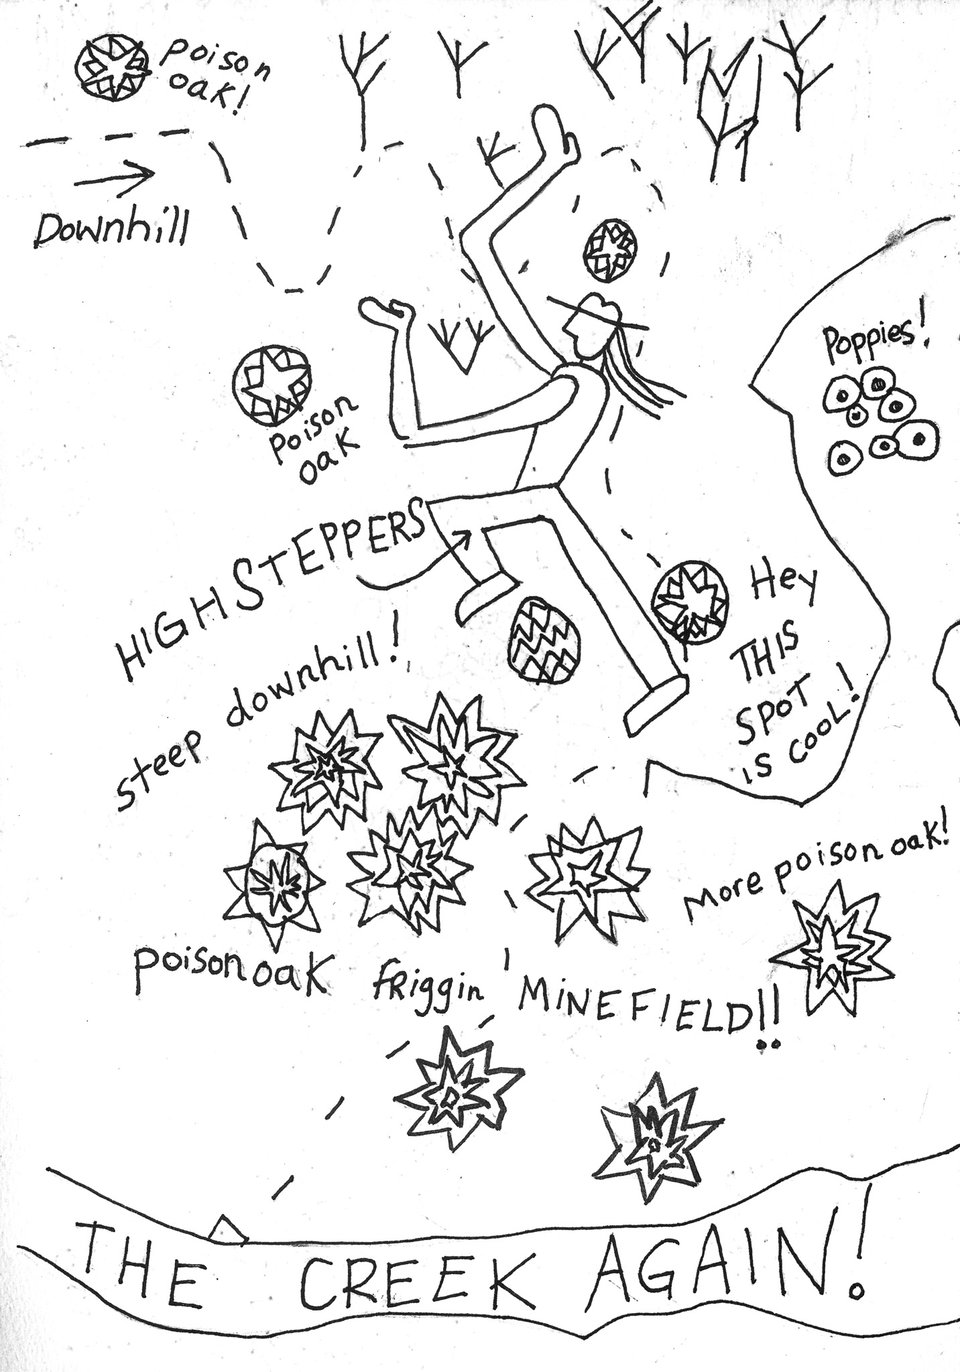 poison
oak!
Downhill
Poppies!
poison
oak
HIGH STEPPERS
Hey
THIS
SPOT
iS COOL!
steep downhill!
More poison oak!
poison oak friggin MiNEFIELD!!
THE CREEK AGAIN!